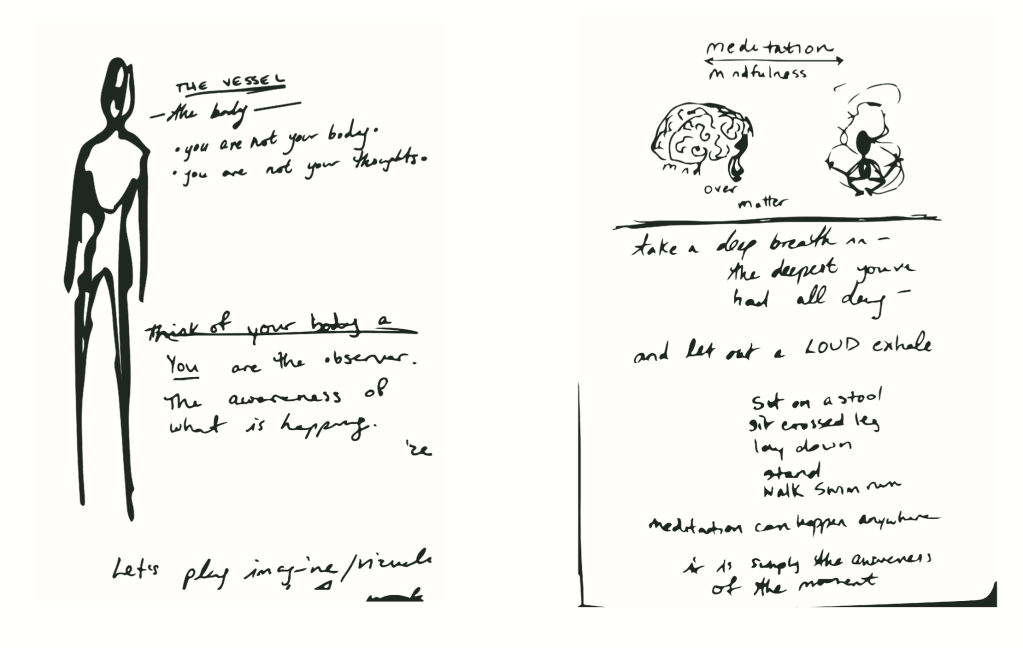 THE VESSEL
- the body -
• you are not your body.
• you are not your thoughts.
think of your body a
You are the observer.
The awareness of
what is happening.
're
Let's play imagine/visuals
meditation
mindfulness
mind
over
matter
take a deep breath in -
the deepest you've
had all day -
and let out a LOUD exhale
Sit on a stool
sit crossed leg
lay down
stand
walk swim run
meditation can happen anywhere
it is simply the awareness
of the moment